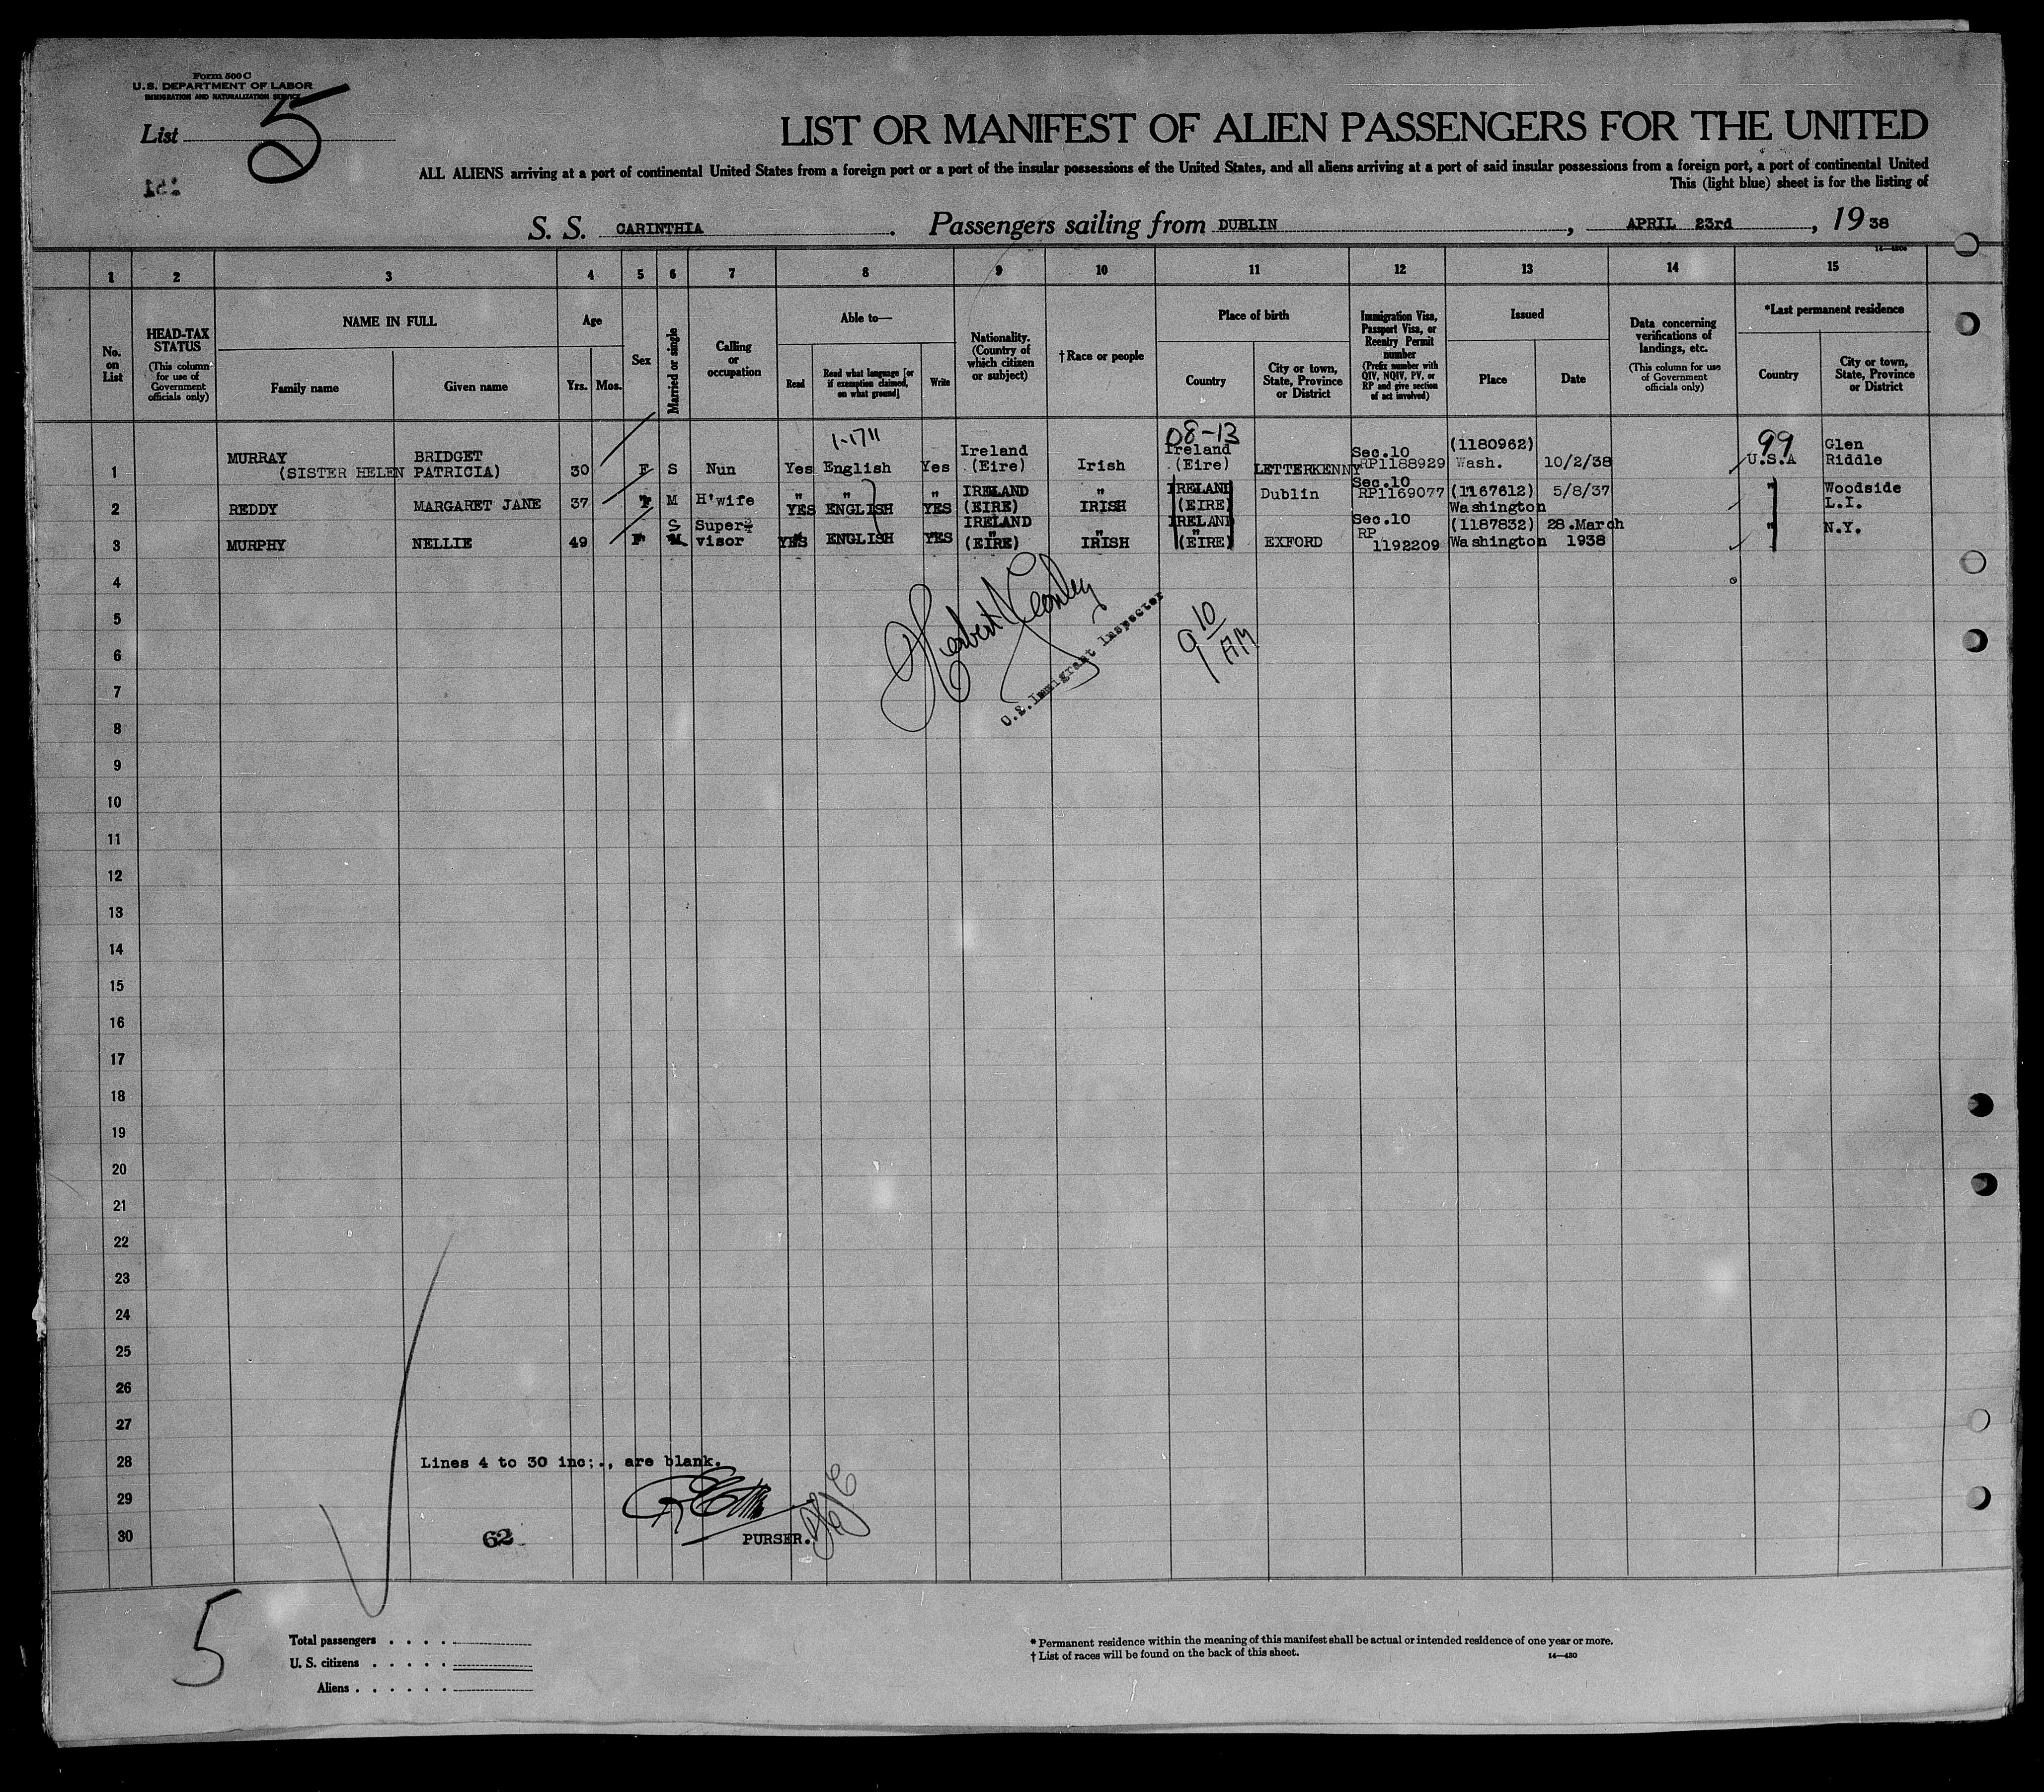 Form 500 C
U.S. DEPARTMENT OF LABOR
IMMIGRATION AND NATURALIZATION SERVICE
List 5
151
LIST OR MANIFEST OF ALIEN PASSENGERS FOR THE UNITED
ALL ALIENS arriving at a port of continental United States from a foreign port or a port of the insular possessions of the United States, and all aliens arriving at a port of said insular possessions from a foreign port, a port of continental United
This (light blue) sheet is for the listing of
S. S. CARINTHIA . Passengers sailing from DUBLIN , APRIL 23rd , 19 38
1 2 3 4 5 6 7 8 9 10 11 12 13 14 15
No. on List
HEAD-TAX STATUS (This column for use of Government officials only)
NAME IN FULL
Family name Given name
Age
Yrs. Mos.
Sex
Married or single
Calling or occupation
Able to—
Read Read what language [or if exemption claimed, on what ground] Write
Nationality. (Country of which citizen or subject)
†Race or people
Place of birth
Country City or town, State, Province or District
Immigration Visa, Passport Visa, or Reentry Permit number (Prefix number with QIV, NQIV, PV, or RP and give section of act involved)
Issued
Place Date
Data concerning verifications of landings, etc. (This column for use of Government officials only)
*Last permanent residence
Country City or town, State, Province or District
1-1711 08-13 99
1 MURRAY (SISTER HELEN BRIDGET PATRICIA) 30 F S Nun Yes English Yes Ireland (Eire) Irish Ireland (Eire) LETTERKENNY Sec.10 RP1188929 (1180962) Wash. 10/2/38 U.S.A Glen Riddle
2 REDDY MARGARET JANE 37 F M H'wife " YES " ENGLISH " YES IRELAND (EIRE) " IRISH IRELAND (EIRE) Dublin Sec.10 RP1169077 (1167612) Washington 5/8/37 " Woodside L.I.
3 MURPHY NELLIE 49 F S M Supervisor YES ENGLISH YES IRELAND (EIRE) " IRISH IRELAND (EIRE) EXFORD Sec.10 RP 1192209 (1187832) Washington 28.March 1938 " N.Y.
4
5
6
7
8
9
10
11
12
13
14
15
16
17
18
19
20
21
22
23
24
25
26
27
28
29
30
U.S. Immigrant Inspector
9 10 AM
Lines 4 to 30 inc;., are blank.
62
PURSER.
5
Total passengers . . . .
U. S. citizens . . . . .
Aliens . . . . . .
* Permanent residence within the meaning of this manifest shall be actual or intended residence of one year or more.
† List of races will be found on the back of this sheet.
14—430